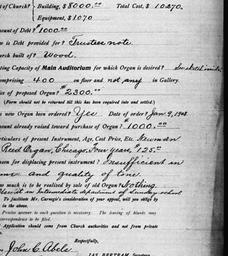 of Church? Building, $8000.00 Total Cost, $10270.
Equipment, $1070
Amount of Debt? $1000.00
is Debt provided for? Trustee note.
Church built of? Wood.
Seating Capacity of Main Auditorium for which Organ is desired?
comprising 400 on floor and not any in Gallery.
of proposed Organ? 2300.00
(Form should not be returned till this has been required into and settled.)
new Organ been Ordered? Yes. Date of order? Jan 9, 1908
amount already raised toward purchase of Organ? $1000.00
particulars of present Instrument, Age, Cost Price, Etc. German
Reed Organ, Chicago, Four years, $125.00
reason for displacing present instrument? Insufficient in
and quality of tone
much is to be realized by sale of old Organ? Nothing
in Intermediate department of Sunday school
To facilitate Mr. Carnegie's consideration of your appeal, will you oblige by
in the above.
Precise answer to each question is necessary. The leaving of blanks may
correspondence to be filed.
application should not be made and form with
Respectfully,
John C. Abels
JAS BERTRAM, Secretary